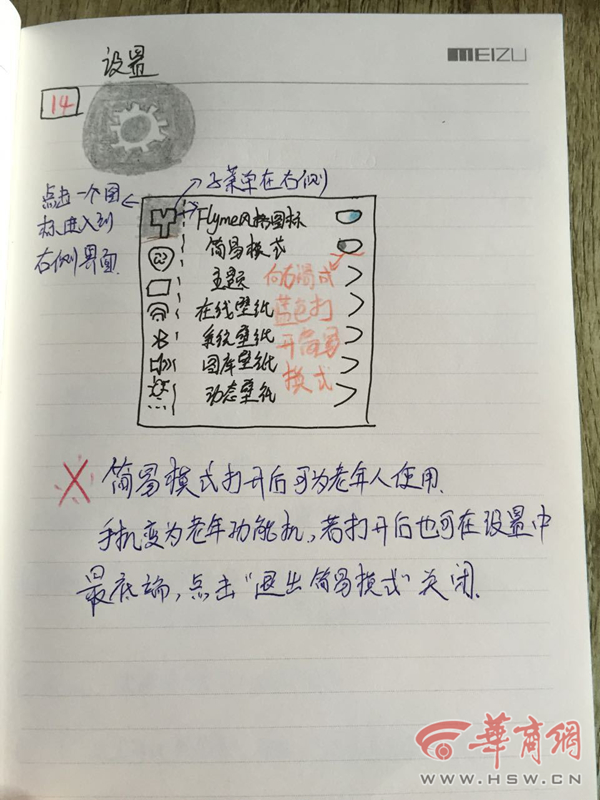 设置
MEIZU
14
子菜单在右侧
点击一个图
标,进入到
右侧界面.
Flyme风格图标
简易模式
主题
在线壁纸
系统壁纸
图库壁纸
动态壁纸
向右滑式
蓝色打
开简易
模式
简易模式打开后可为老年人使用.
手机变为老年功能机,若打开后也可在设置中
最底端,点击“退出简易模式”关闭.
華商網
WWW.HSW.CN